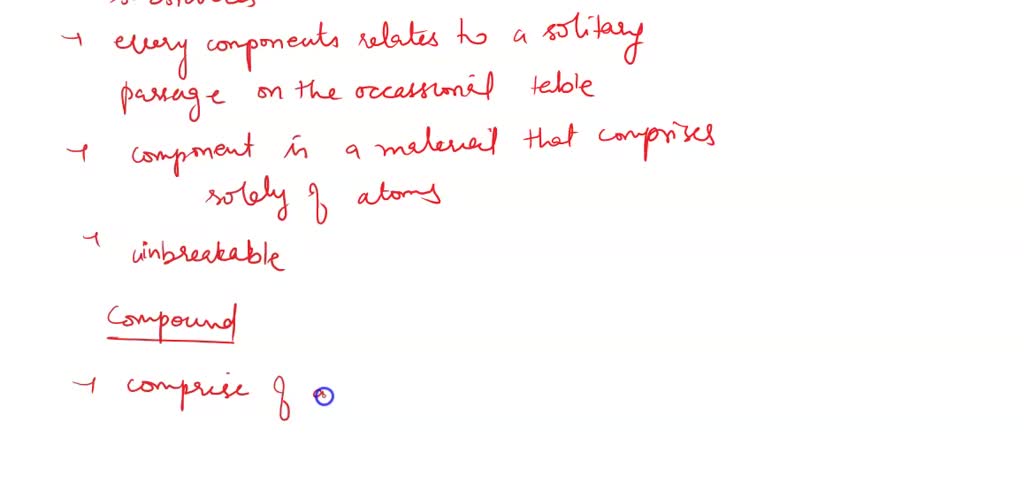 → every components relates to a solitary
passage on the occassional table
→ component is a material that comprises
solely of atoms
→ unbreakable
Compound
→ comprise of